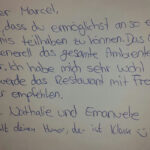 er Marcel,
dass du ermöglichst an so e
ms teilhaben zu können. Das
enerell das gesamte Ambiente
r. Ich habe mich sehr wohl
werde das Restaurant mit Fre
er empfehlen.
Nathalie und Emanuele
deinen Humor, der ist Klasse